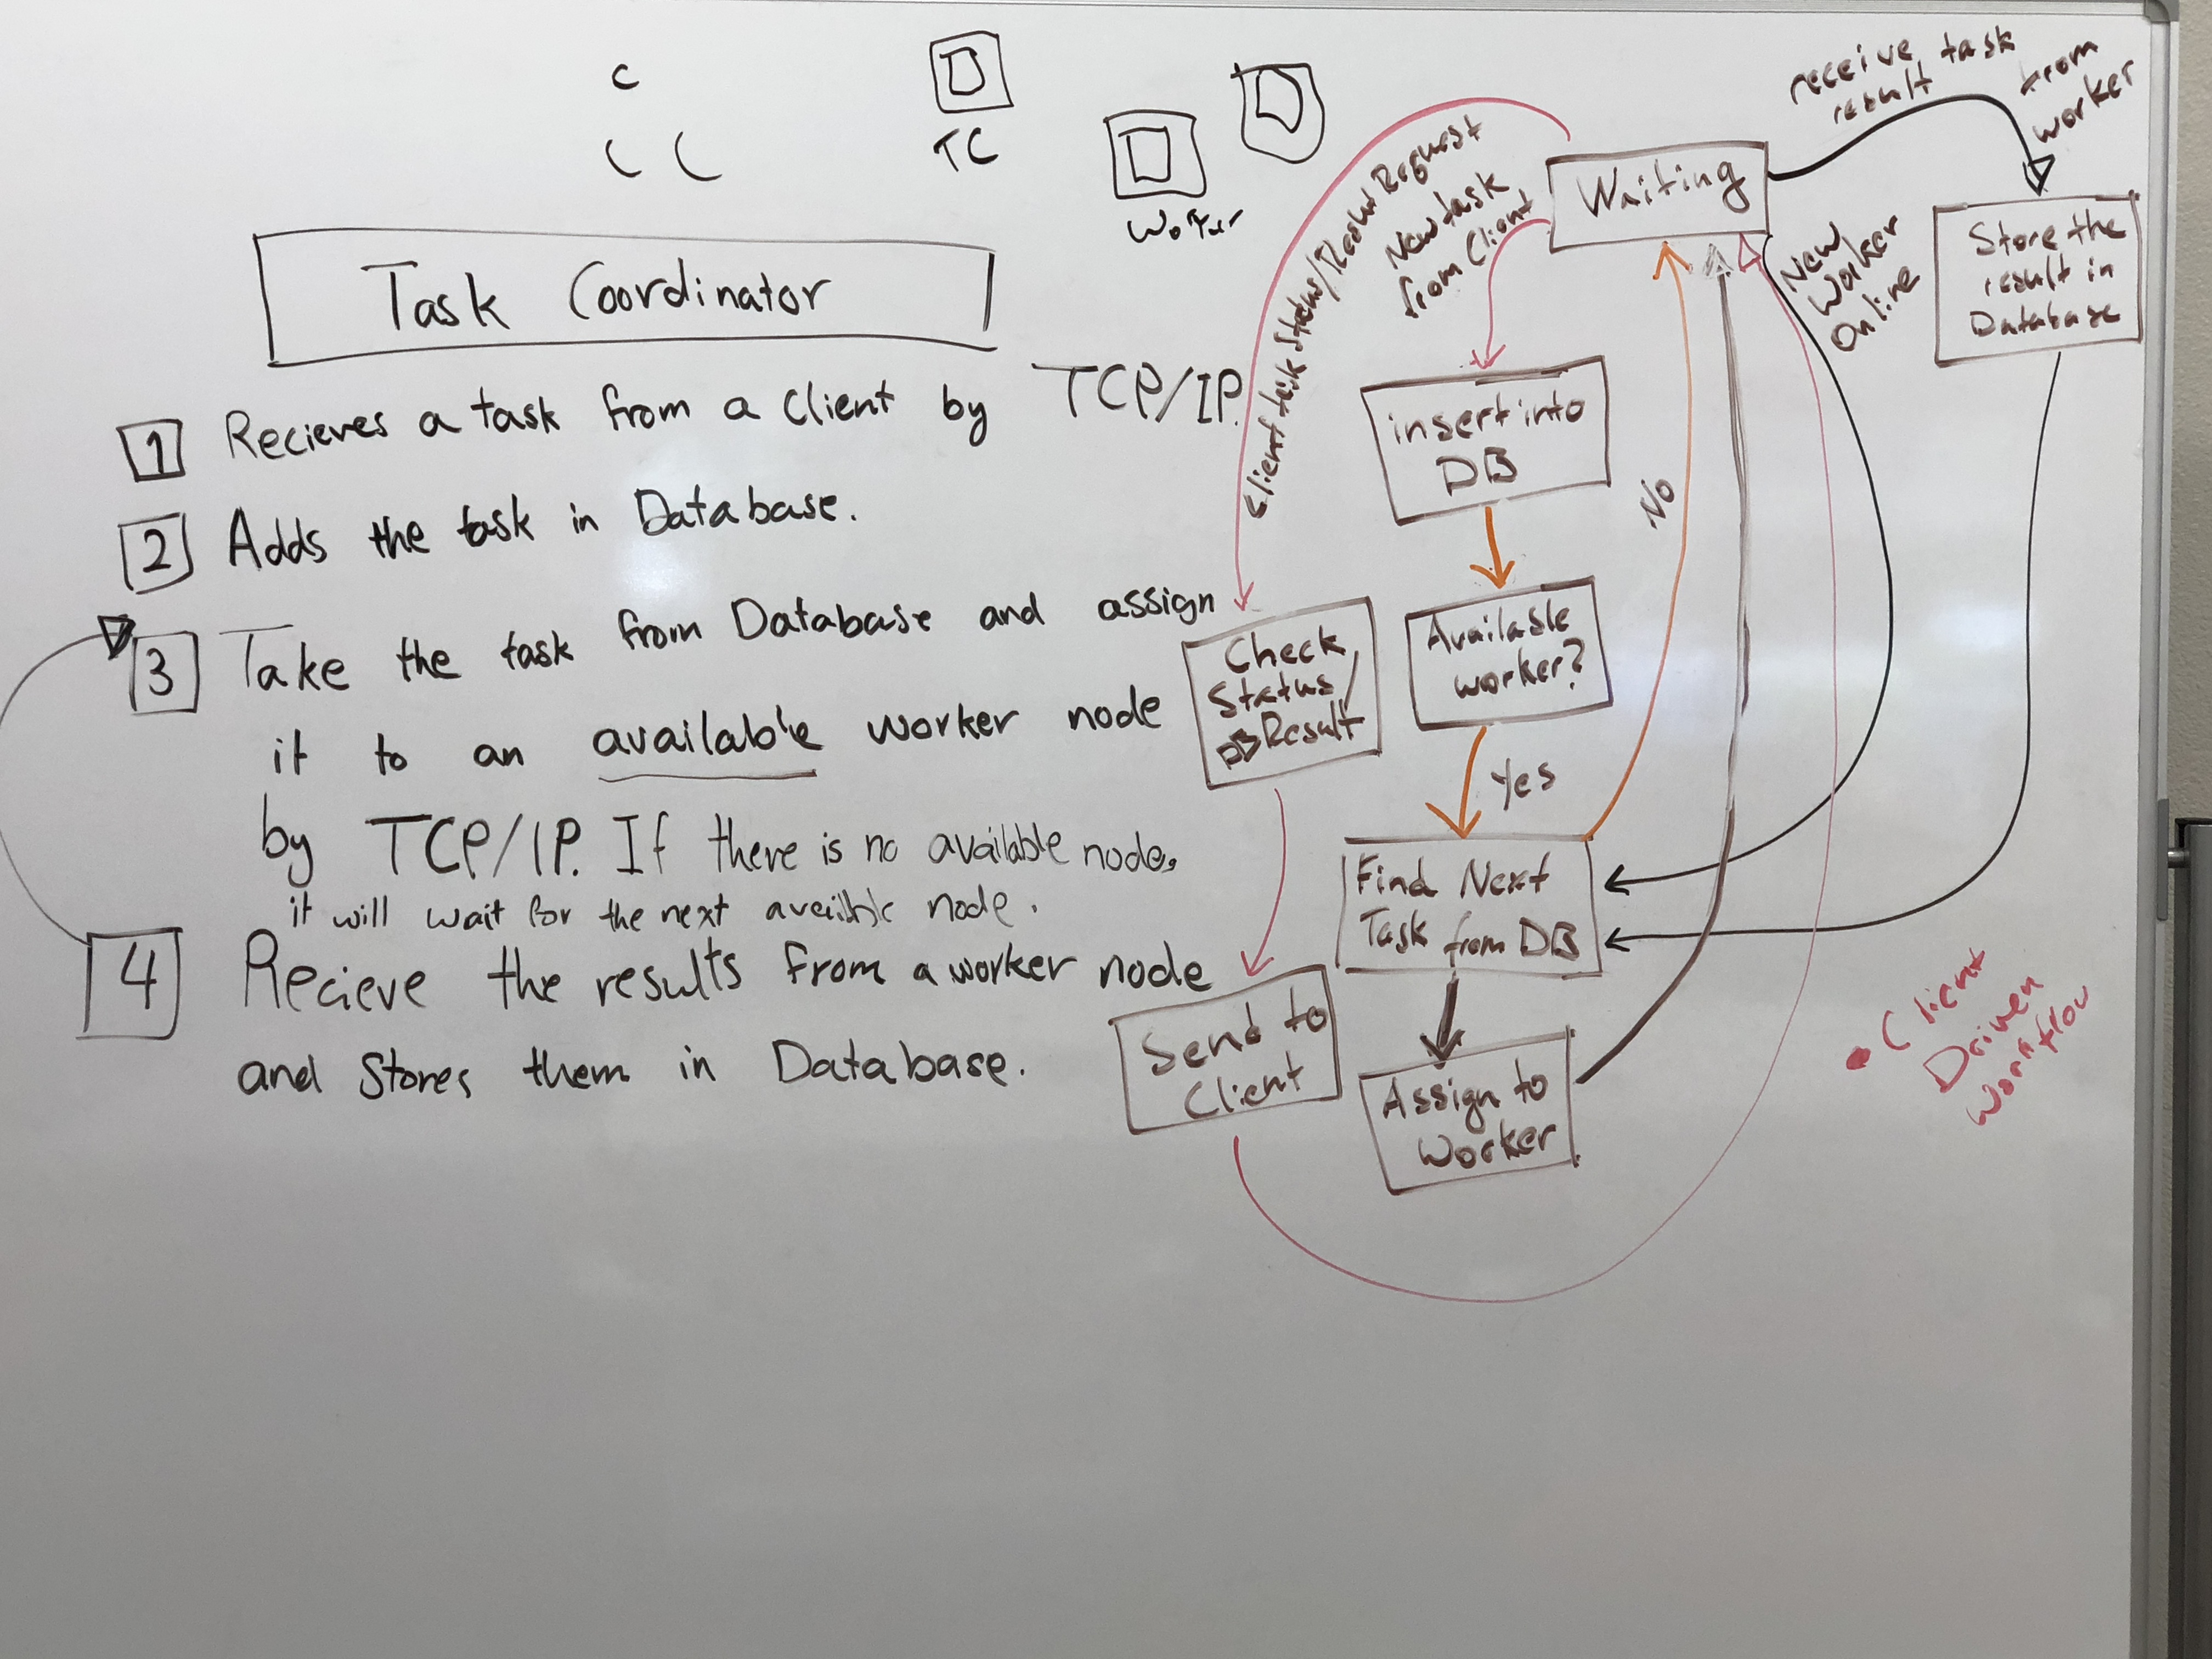 C
C C
TC
Worker
Task Coordinator
1 Recieves a task from a client by TCP/IP.
2 Adds the task in Database.
3 Take the task from Database and assign
it to an available worker node
by TCP/IP. If there is no available node,
it will wait for the next availible node.
4 Recieve the results from a worker node
and Stores them in Database.
Waiting
receive task
result
from
worker
Store the
result in
Database
New
Worker
Online
Client task Status/Result Request
New task
from Client
insert into
DB
Available
worker?
Yes
No
Check
Status/
DB Result
Find Next
Task from DB
Send to
Client
Assign to
Worker
• Client
Driven
Workflow